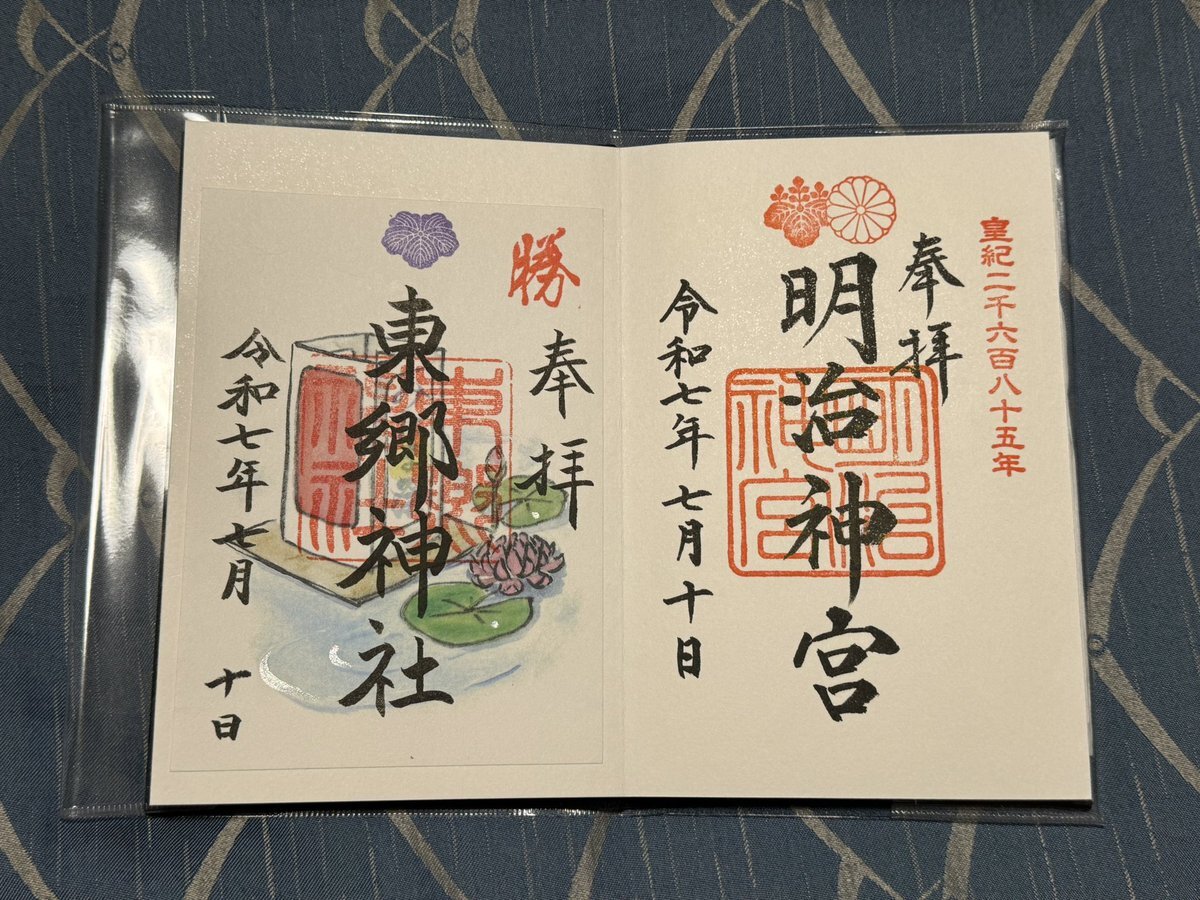 皇紀二千六百八十五年
奉拝
明治神宮
明治神宮
令和七年七月十日
勝
奉拝
東郷神社
令和七年七月十日